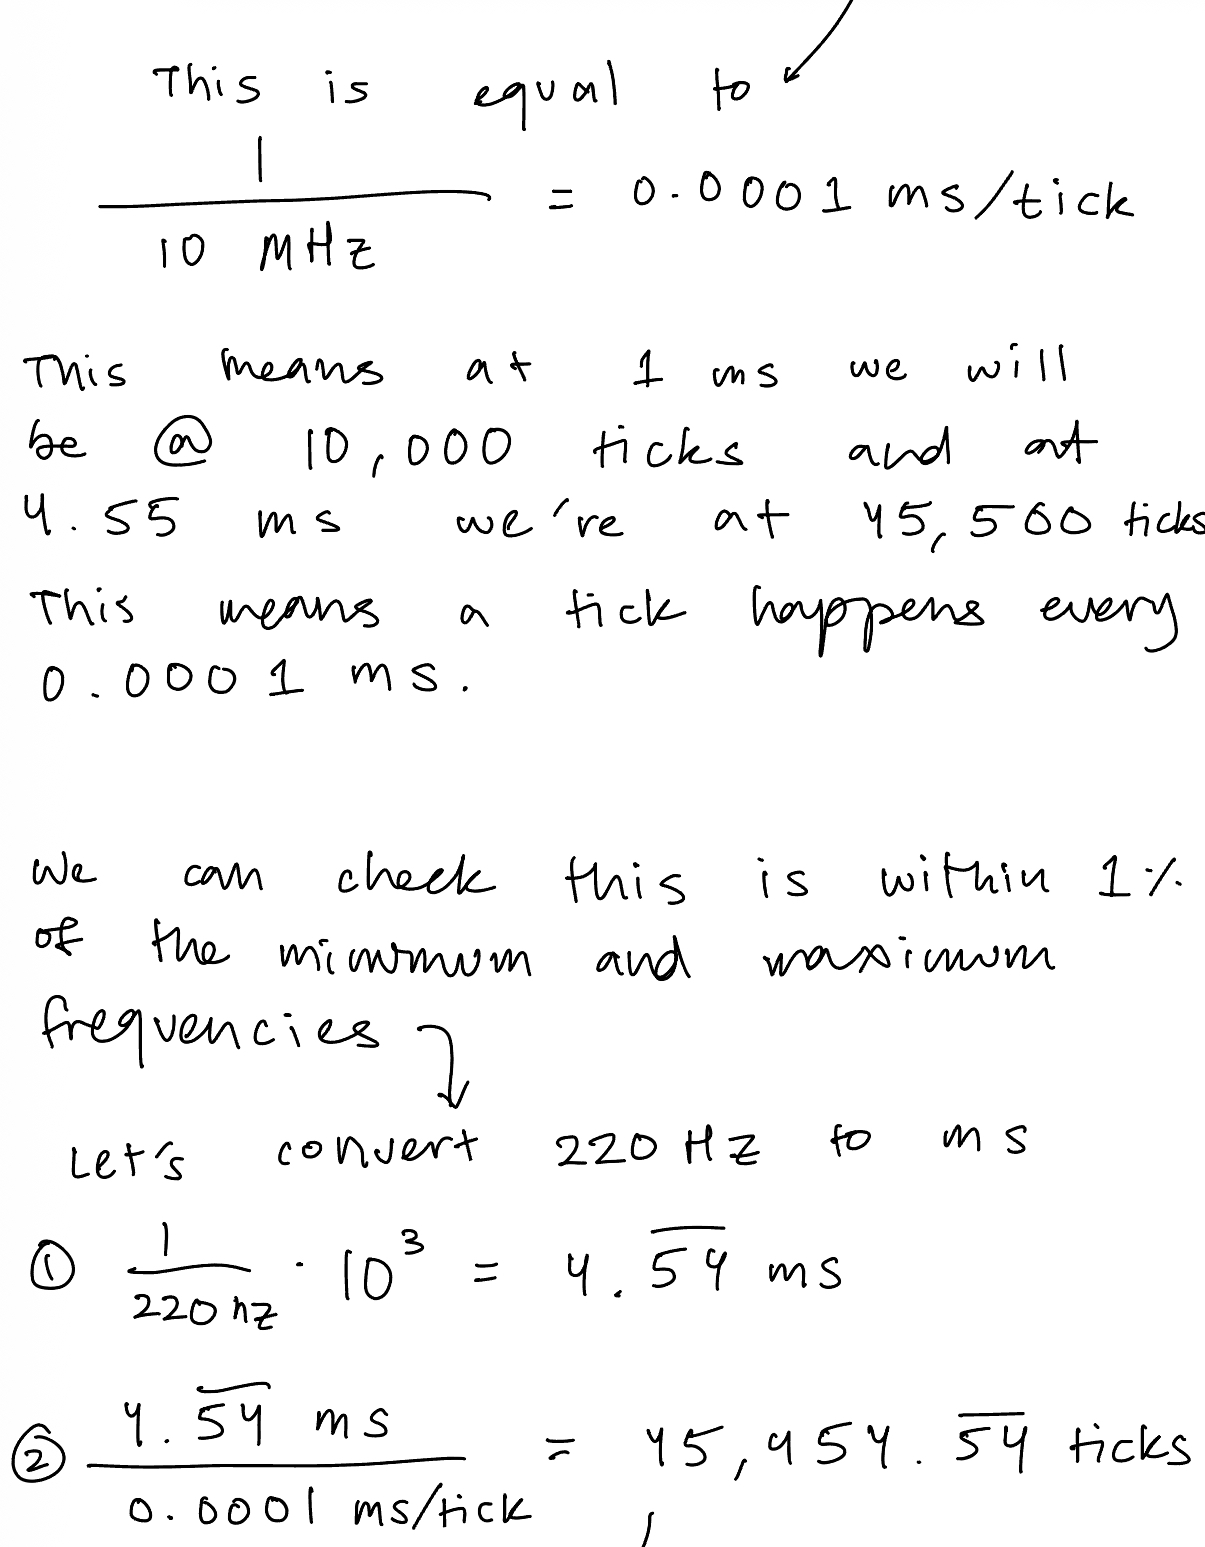 This is equal to
1
10 MHz
= 0.0001 ms/tick
This means at 1 ms we will
be @ 10,000 ticks and at
4.55 ms we're at 45,500 ticks
This means a tick happens every
0.0001 ms.
We can check this is within 1%
of the minimum and maximum
frequencies
Let's convert 220 Hz to ms
① 1/220 hz · 10³ = 4.5̅4̅ ms
② 4.5̅4̅ ms / 0.0001 ms/tick = 45,454.5̅4̅ ticks